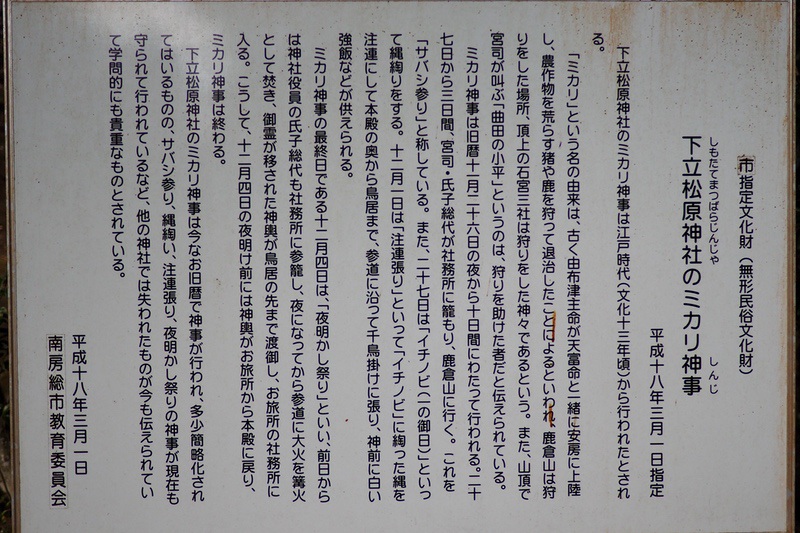 市指定文化財（無形民俗文化財）
しもたてまつばらじんじゃ しんじ
下立松原神社のミカリ神事
平成十八年三月一日指定
下立松原神社のミカリ神事は江戸時代（文化十三年頃）から行われたとされ
る。
「ミカリ」という名の由来は、古く由布津主命が天富命と一緒に安房に上陸
し、農作物を荒らす猪や鹿を狩って退治したことによるといわれ、鹿倉山は狩
りをした場所、頂上の石宮三社は狩りをした神々であるという。また、山頂で
宮司が叫ぶ「曲田の小平」というのは、狩りを助けた者だと伝えられている。
ミカリ神事は旧暦十一月二十六日の夜から十日間にわたって行われる。二十
七日から三日間、宮司・氏子総代が社務所に籠もり、鹿倉山に行く。これを
「サバシ参り」と称している。また、二十七日は「イチノビ（一の御日）」といっ
て縄綯りをする。十二月一日は「注連張り」といって「イチノビ」に綯った縄を
注連にして本殿の奥から鳥居まで、参道に沿って千鳥掛けに張り、神前に白い
強飯などが供えられる。
ミカリ神事の最終日である十二月四日は、「夜明かし祭り」といい、前日から
は神社役員の氏子総代も社務所に参籠し、夜になってから参道に大火を篝火
として焚き、御霊が移された神輿が鳥居の先まで渡御し、お旅所の社務所に
入る。こうして、十二月四日の夜明け前には神輿がお旅所から本殿に戻り、
ミカリ神事は終わる。
下立松原神社のミカリ神事は今なお旧暦で神事が行われ、多少簡略化され
てはいるものの、サバシ参り、縄綯い、注連張り、夜明かし祭りの神事が現在も
守られて行われているなど、他の神社では失われたものが今も伝えられてい
て学問的にも貴重なものとされている。
平成十八年三月一日
南房総市教育委員会